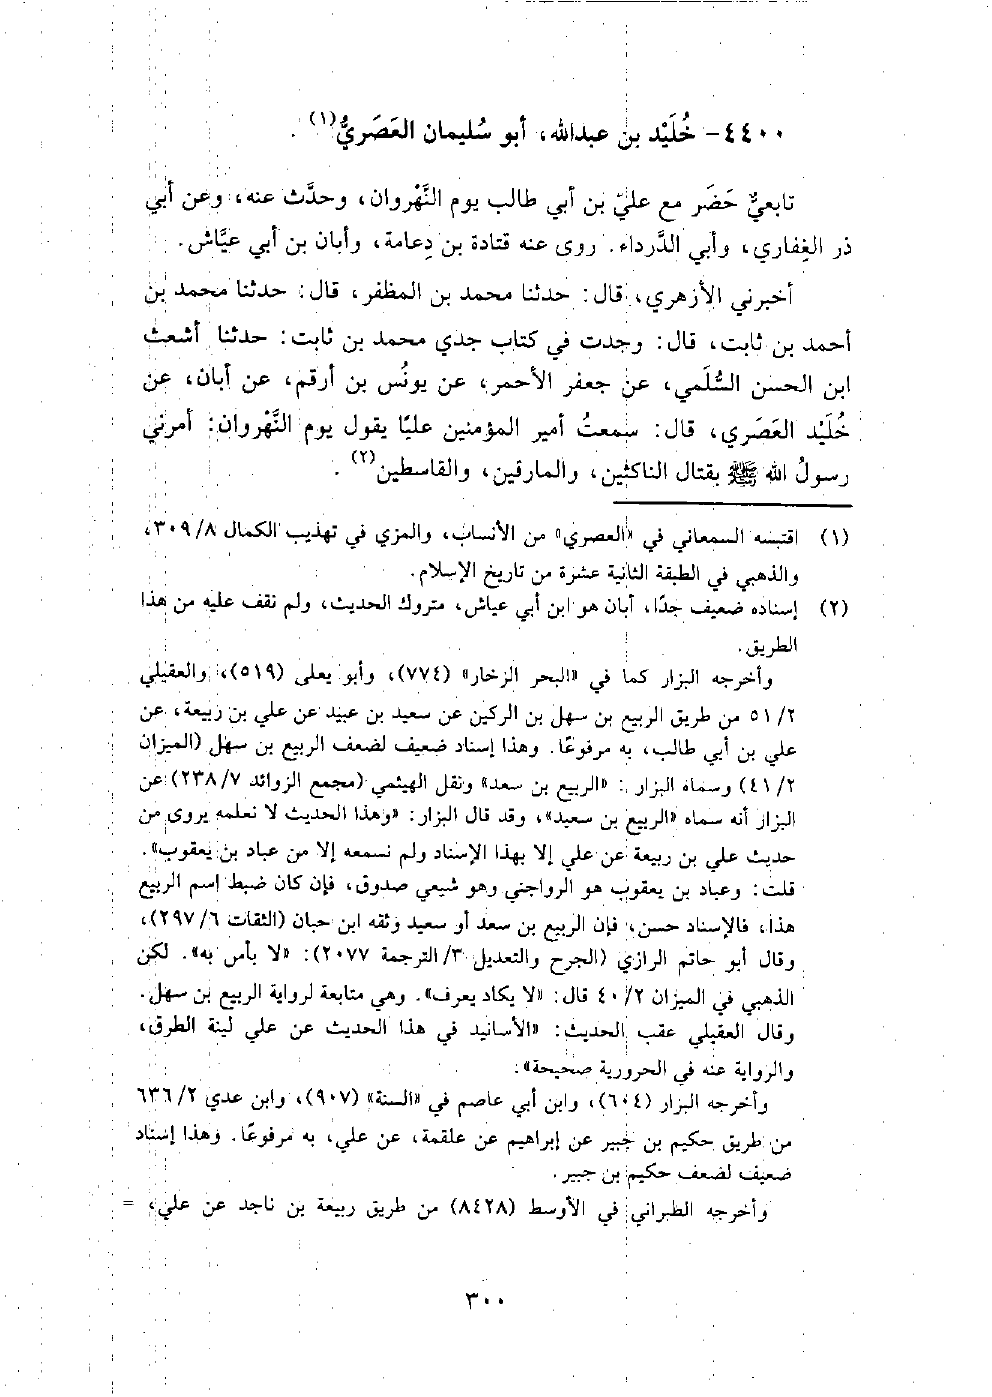 ٤٤٠٠- خُلَيْد بن عبدالله، أبو سُليمان العَصَريُّ(١).
تابعيٌّ حَضَر مع عليّ بن أبي طالب يوم النَّهْروان، وحدَّث عنه، وعن أبي
ذر الغِفاري، وأبي الدَّرداء. روى عنه قتادة بن دِعامة، وأبان بن أبي عيَّاش.
أخبرني الأزهري، قال: حدثنا محمد بن المظفر، قال: حدثنا محمد بن
أحمد بن ثابت، قال: وجدت في كتاب جدي محمد بن ثابت: حدثنا أشعث
ابن الحسن السُّلَمي، عن جعفر الأحمر، عن يونُس بن أرقم، عن أبان، عن
خُلَيْد العَصَري، قال: سمعتُ أمير المؤمنين عليًا يقول يوم النَّهْروان: أمرني
رسولُ الله ﷺ بقتال الناكثين، والمارقين، والقاسطين(٢).
(١) اقتبسه السمعاني في «العصري» من الأنساب، والمزي في تهذيب الكمال ٣٠٩/٨،
والذهبي في الطبقة الثانية عشرة من تاريخ الإسلام.
(٢) إسناده ضعيف جدًا، أبان هو ابن أبي عياش، متروك الحديث، ولم نقف عليه من هذا
الطريق.
وأخرجه البزار كما في «البحر الزخار» (٧٧٤)، وأبو يعلى (٥١٩)، والعقيلي
٥١/٢ من طريق الربيع بن سهل بن الركين عن سعيد بن عبيد عن علي بن ربيعة، عن
علي بن أبي طالب، به مرفوعًا. وهذا إسناد ضعيف لضعف الربيع بن سهل (الميزان
٤١/٢) وسماه البزار: «الربيع بن سعد» ونقل الهيثمي (مجمع الزوائد ٢٣٨/٧) عن
البزار أنه سماه «الربيع بن سعيد»، وقد قال البزار: «وهذا الحديث لا نعلمه يروى من
حديث علي بن ربيعة عن علي إلا بهذا الإسناد ولم نسمعه إلا من عباد بن يعقوب».
قلت: وعباد بن يعقوب هو الرواجني وهو شيعي صدوق، فإن كان ضبط إسم الربيع
هذا، فالإسناد حسن، فإن الربيع بن سعد أو سعيد وثقه ابن حبان (الثقات ٢٩٧/٦)،
وقال أبو حاتم الرازي (الجرح والتعديل ٣/ الترجمة ٢٠٧٧): «لا بأس به». لكن
الذهبي في الميزان ٤٠/٢ قال: «لا يكاد يعرف». وهي متابعة لرواية الربيع بن سهل.
وقال العقيلي عقب الحديث: «الأسانيد في هذا الحديث عن علي لينة الطرق،
والرواية عنه في الحرورية صحيحة».
وأخرجه البزار (٦٠٤)، وابن أبي عاصم في «السنة» (٩٠٧)، وابن عدي ٦٣٦/٢
من طريق حكيم بن جبير عن إبراهيم عن علقمة، عن علي، به مرفوعًا. وهذا إسناد
ضعيف لضعف حكيم بن جبير.
وأخرجه الطبراني في الأوسط (٨٤٢٨) من طريق ربيعة بن ناجد عن علي، =
٣٠٠